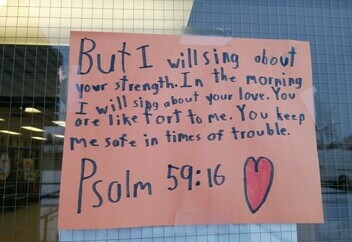 But I will sing about
your strength. In the morning
I will sing about your love. You
are like fort to me. You keep
me safe in times of trouble.
Psalm 59:16